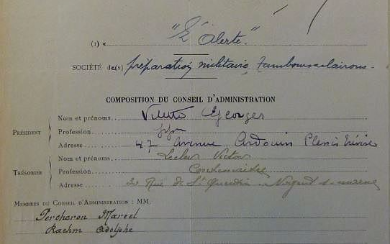 (1) "L'Alerte"
SOCIÉTÉ de(2) préparation militaire, tambours-clairons
COMPOSITION DU CONSEIL D'ADMINISTRATION
Nom et prénoms Georges
PRÉSIDENT Profession
Adresse 47 Avenue Ardouin Plessis Trévise
Nom et prénoms Leclerc Victor
TRÉSORIER Profession
Adresse Rue de St Quentin Nogent s-marne
MEMBRES DU CONSEIL D'ADMINISTRATION : MM.
Percheron Marcel
Adolphe